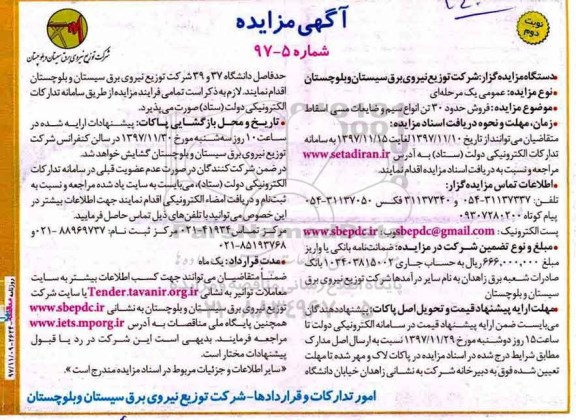 آگهی مزایده
شماره ۵-۹۷
نوبت دوم
شرکت توزیع نیروی برق سیستان و بلوچستان
دستگاه مزایده گزار: شرکت توزیع نیروی برق سیستان وبلوچستان
نوع مزایده: عمومی یک مرحله‌ای
موضوع مزایده: فروش حدود ۳۰ تن انواع سیم و ضایعات مسی اسقاط
زمان، مهلت و نحوه دریافت اسناد مزایده:
متقاضیان می‌توانند از تاریخ ۱۳۹۷/۱۱/۱۰ لغایت ۱۳۹۷/۱۱/۱۵ به سامانه
تدارکات الکترونیکی دولت (ستاد) به آدرس www.setadiran.ir
مراجعه و نسبت به دریافت اسناد مزایده اقدام نمایند.
اطلاعات تماس مزایده گزار:
تلفن: ۳۱۱۳۷۳۳۷-۰۵۴ و ۳۱۱۳۷۳۴۰ فکس ۳۱۱۳۷۰۵۰-۰۵۴
پیام کوتاه ۰۹۳۰۷۲۸۰۲۰۰
پست الکترونیک: sbepdc@gmail.com وب www.sbepdc.ir
مبلغ و نوع تضمین شرکت در مزایده: ضمانت‌نامه بانکی یا واریز
مبلغ ۶۶۶,۰۰۰,۰۰۰ ریال به حساب جاری ۰۱۰۳۴۰۳۸۱۵۰۰۲ بانک
صادرات شعبه برق زاهدان به نام سایر درآمدها شرکت توزیع نیروی برق
سیستان و بلوچستان
مهلت ارایه پیشنهاد قیمت و تحویل اصل پاکات: پیشنهاددهندگان
می‌بایست ضمن ارایه پیشنهاد قیمت در سامانه الکترونیکی دولت تا
ساعت ۱۵ روز دوشنبه مورخ ۱۳۹۷/۱۱/۲۹ نسبت به ارسال اصل مدارک
مطابق شرایط درج شده در اسناد مزایده در پاکات لاک و مهر شده تا مهلت
تعیین شده فوق به دبیرخانه شرکت به نشانی زاهدان خیابان دانشگاه
حدفاصل دانشگاه ۳۷ و ۳۹ شرکت توزیع نیروی برق سیستان و بلوچستان
اقدام نمایند. لازم به ذکر است تمامی فرایند مزایده از طریق سامانه تدارکات
الکترونیکی دولت (ستاد) صورت می‌پذیرد.
تاریخ و محل بازگشایی پاکات: پیشنهادات ارایه شده در
ساعت ۱۰ روز سه‌شنبه مورخ ۱۳۹۷/۱۱/۳۰ در سالن کنفرانس شرکت
توزیع نیروی برق سیستان و بلوچستان گشایش خواهد شد.
در ضمن شرکت‌کنندگان در صورت عدم عضویت قبلی در سامانه تدارکات
الکترونیکی دولت (ستاد)، می‌بایست به سایت یاد شده مراجعه و نسبت به
ثبت‌نام و دریافت امضاء الکترونیکی اقدام نمایند جهت اطلاعات بیشتر در
این خصوص می‌توانید با تلفن‌های ذیل تماس حاصل فرمایید.
مرکز تماس: ۴۱۹۳۴-۰۲۱ مرکز ثبت نام: ۸۸۹۶۹۷۳۷-۰۲۱ و
۸۵۱۹۳۷۶۸-۰۲۱
مدت قرارداد: یک ماه
ضمناً متقاضیان می توانند جهت کسب اطلاعات بیشتر به سایت
معاملات توانیر به نشانی Tender.tavanir.org.ir یا سایت شرکت
توزیع نیروی برق سیستان و بلوچستان به نشانی www.sbepdc.ir
همچنین پایگاه ملی مناقصات به آدرس www.iets.mporg.ir
مراجعه فرمایند. بدیهی است این شرکت در رد یا قبول
پیشنهادات مختار است.
«سایر اطلاعات و جزئیات مربوط در اسناد مزایده مندرج است».
امور تدارکات و قراردادها - شرکت توزیع نیروی برق سیستان وبلوچستان